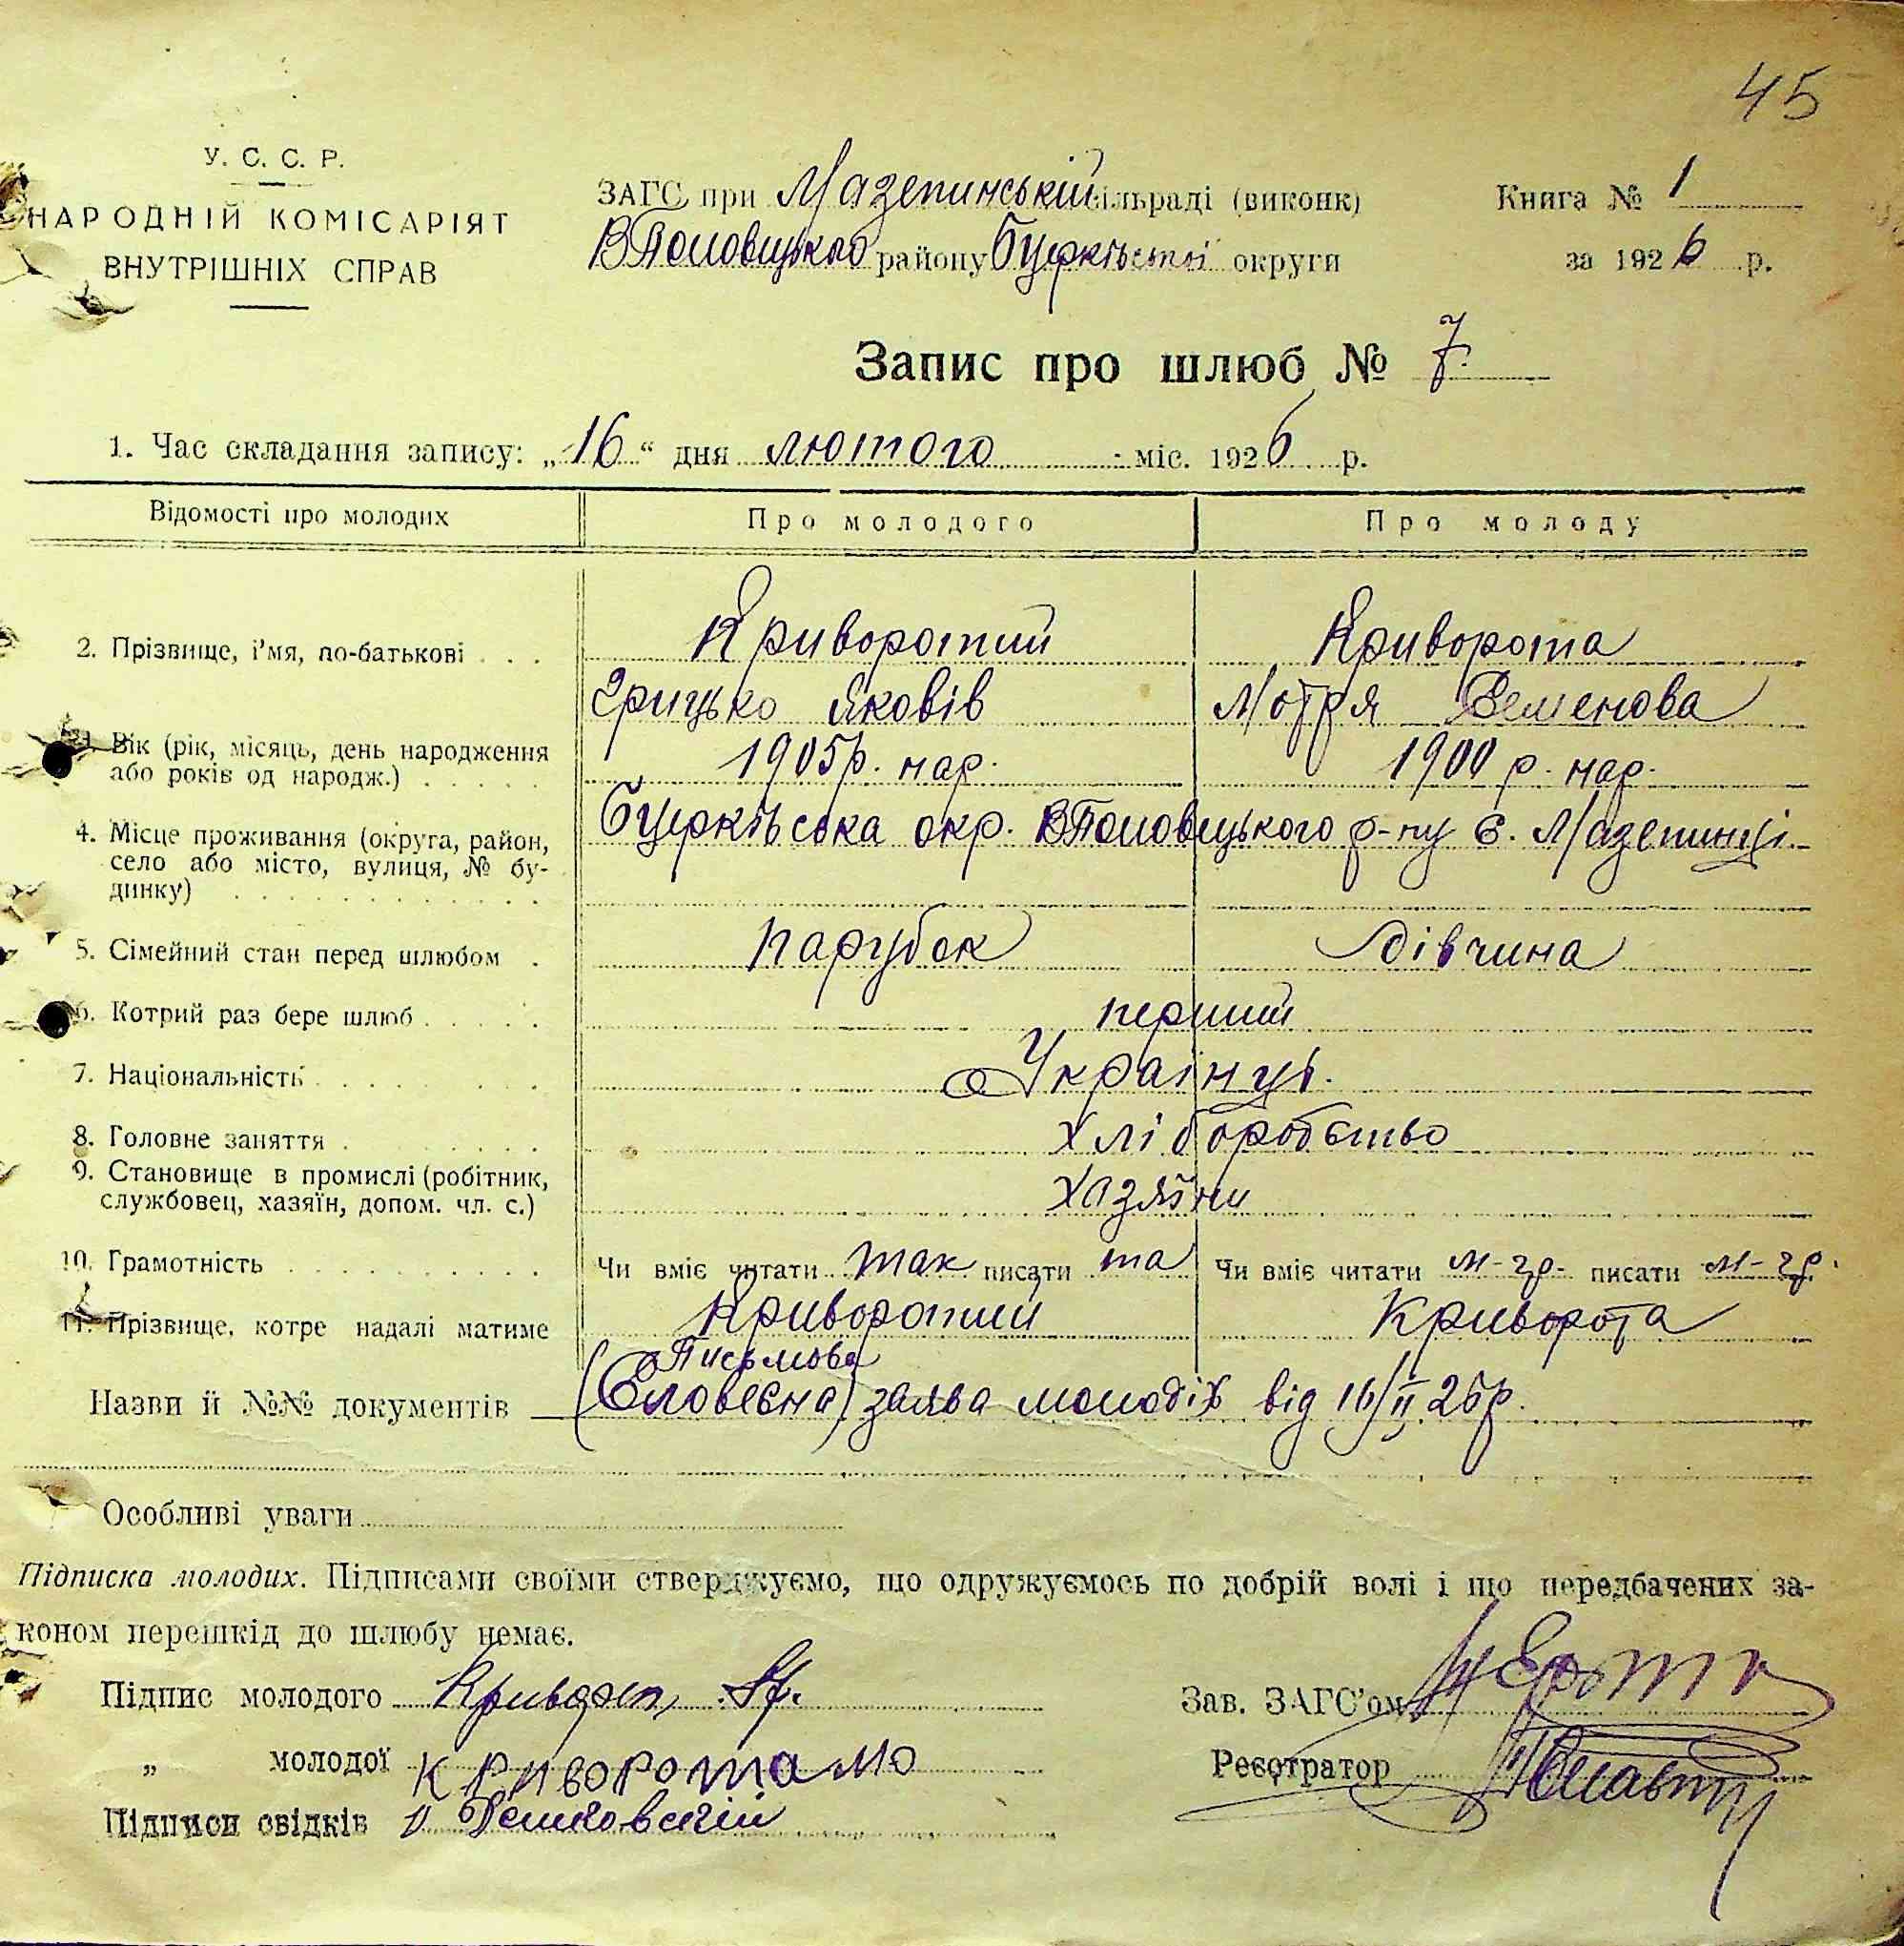 45
У. С. С. Р.
НАРОДНІЙ КОМІСАРІЯТ
ВНУТРІШНІХ СПРАВ
ЗАГС при Мазепинській сільраді (виконк)
ВПоловецького району БЦерківської округи
Книга № 1
за 1926 р.
Запис про шлюб № 7.
1. Час складання запису: „16“ дня лютого міс. 1926 р.
Відомості про молодих Про молодого Про молоду
2. Прізвище, і'мя, по-батькові . . . Криворотий Криворота
Грицько Яковів Мотря Семенова
3. Вік (рік, місяць, день народження 1905р. нар. 1900 р. нар.
або років од народж.) . . . . .
4. Місце проживання (округа, район, БЦерківська окр. ВПоловецького р-ну с. Мазепинці.
село або місто, вулиця, № бу-
динку) . . . . . . . . . . . .
5. Сімейний стан перед шлюбом . парубок дівчина
6. Котрий раз бере шлюб . . . . . перший
7. Національність . . . . . . . Українці.
8. Головне заняття . . . . . . . хліборобство
9. Становище в промислі (робітник, хазяїни
службовец, хазяїн, допом. чл. с.)
10. Грамотність . . . . . . . . . . Чи вміє читати так писати та Чи вміє читати м-гр. писати м-гр.
11. Прізвище, котре надалі матиме Криворотий Криворота
Письмова
Назви й №№ документів (Словесна) заява молодіх від 16/II 26р.
Особливі уваги
Підписка молодих. Підписами своїми стверджуємо, що одружуємось по добрій волі і що передбачених за-
коном перешкід до шлюбу немає.
Підпис молодого
Зав. ЗАГС'ом
„ молодої Криворота мо
Реєстратор
Підписи свідків